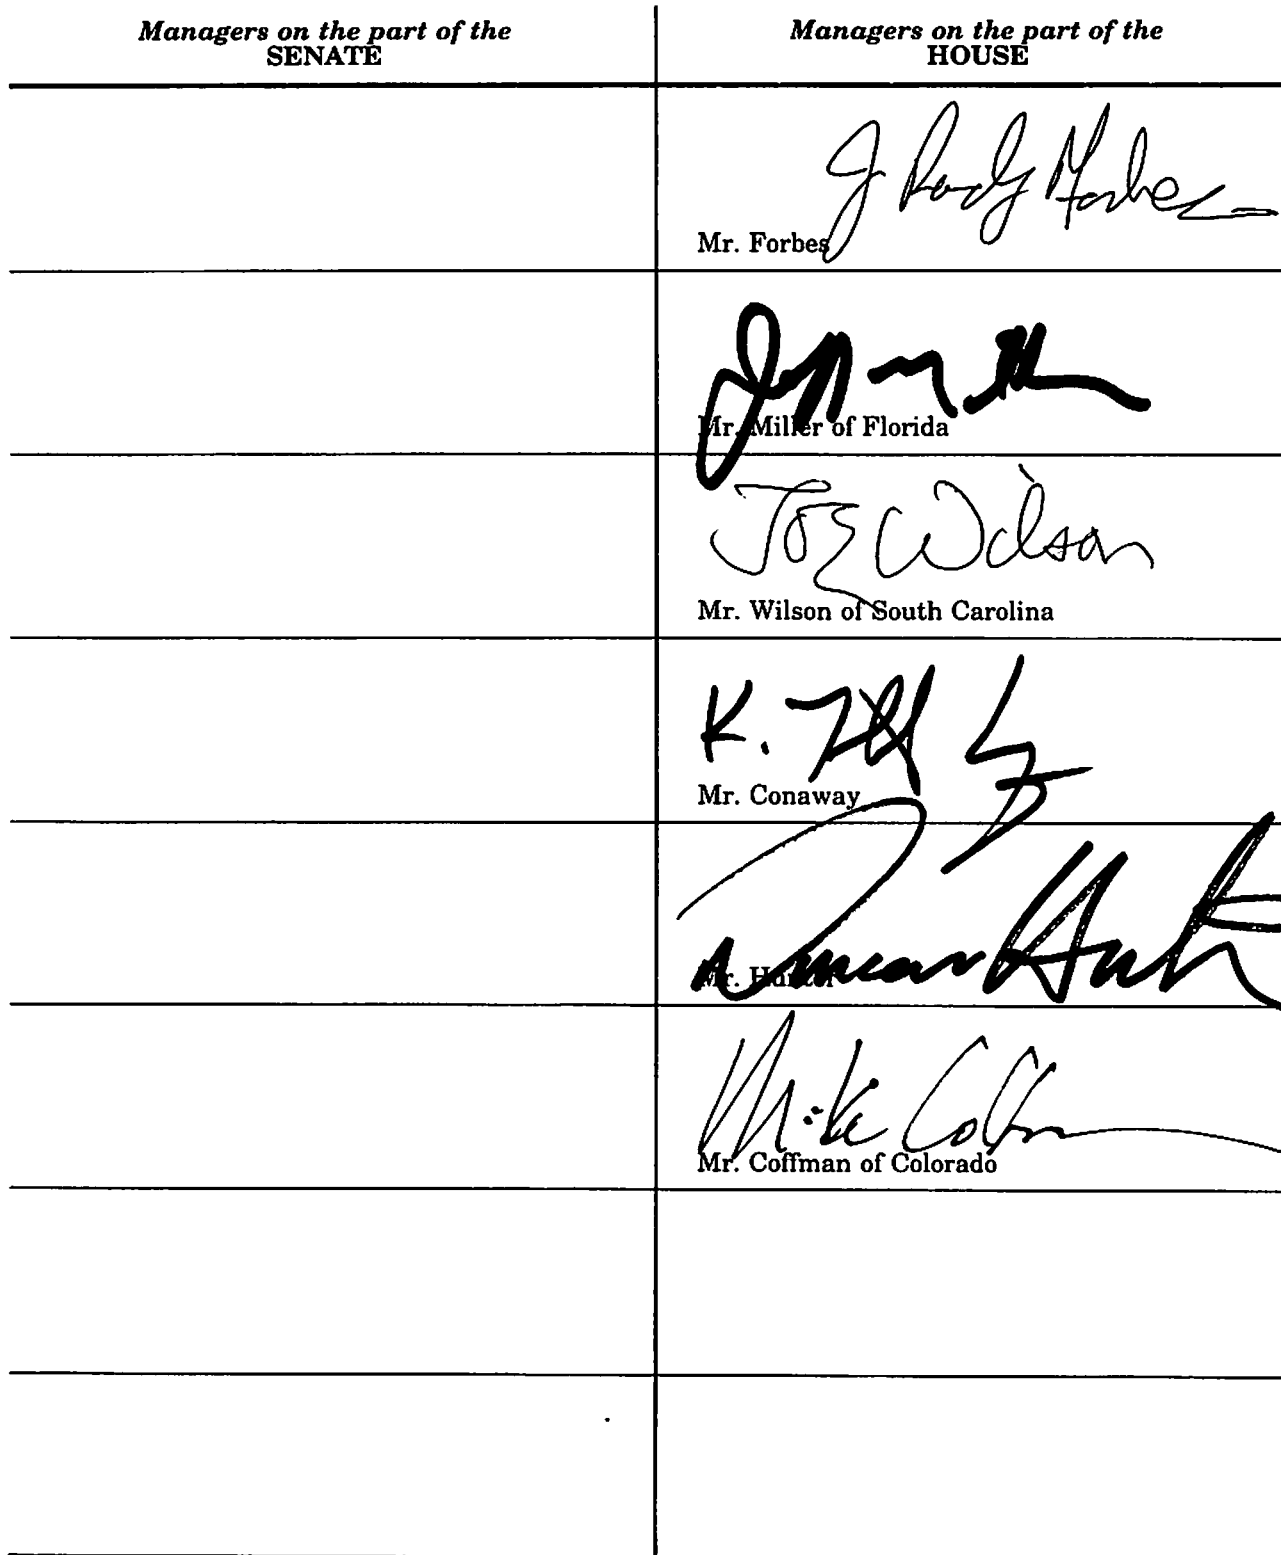 Managers on the part of the
SENATE
Managers on the part of the
HOUSE
J Randy Forbes
Mr. Forbes
Jeff Miller
Mr. Miller of Florida
Joe Wilson
Mr. Wilson of South Carolina
K.
Mr. Conaway
Duncan Hunter
Mr. Hunter
Mike Coffman
Mr. Coffman of Colorado